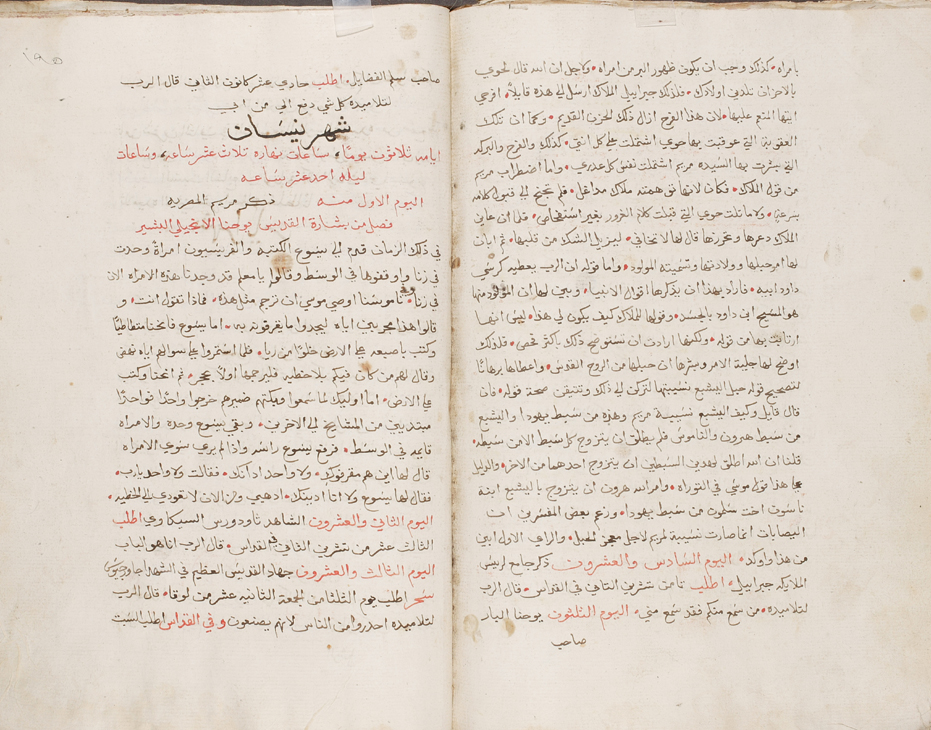 بامراه • كذلك وجب ان يكون ظهور البر من امراه • ولاجل ان الله قال لحوي
بالاحزان تلدين اولادك • فلذلك جبراييل الملاك ارسل الي هذه قايلاً • افرحي
ايتها المنعم عليها • لان هذا الفرح ازال ذلك الحزن القديم • وكما ان تلك
العقوبة التي عوقبت بها حوي اشتملت علي كل انثي • كذلك والفرح والبركه
التي بشرت بها السيده مريم اشتملت تفسير كل عذري • واما اضطراب مريم
من قول الملاك • فكان لانها توهمته ملاك مداغل • فلم تجنح الي قبول كلامه
بسرعة • ولا ماثلت حوي التي قبلت كلام الغرور بغير استفحاص • فلما ان عاين
الملاك دعرها وتحرزها قال لها لا تخافي • ليزيل الشك من قلبها • ثم ابان
لها امر حبلها وولادتها وتسميته المولود • واما قوله ان الرب يعطيه كرسي
داود ابيه • فاراد بهذا ان يذكرها اقوال الانبيا • ويبين لها ان المولود منها
هو المسيح ابن داود بالجسد • وقولها للملاك كيف يكون لي هذا • ليس انها
ارتابت بها من قوله • ولكنها ارادت ان تستوضح ذلك باكثر فحص • فلذلك
اوضح لها جلية الامر وسرها ان حبلها من الروح القدس • واعطاها برهاناً
لتصحيح قوله حبل اليشبع نسيبتها لتركن الي ذلك وتتيقن صحة قوله • فان
قال قايل وكيف اليشبع نسيبة مريم وهذه من سبط يهودا واليشبع
من سبط هرون والناموس فلم يطلق ان يتزوج كل سبط الا من سبطه •
قلنا ان الله اطلق لهدين السبطين ان يتزوج احدهما من الاخر • والدليل
علي هذا قول موسي في التوراه • وامر الله هرون ان يتزوج باليشبع ابنة
ناسون اخت سلمون من سبط يهودا • وزعم بعض المفسرين ان
اليصابات انما صارت نسيبة لمريم لاجل الحبل • والراي الاول ابين
من هذا واوكد • اليوم السادس والعشرون ذكر جامع لرييس
الملايكه جبراييل • اطلب ثامن تشرين الثاني في القداس • قال الرب
لتلاميده • من سمع منكم فقد سمع مني • اليوم الثلثون يوحنا البار
صاحب
صاحب سلم الفضايل • اطلب حادي عشر كانون الثاني قال الرب
لتلاميده كل شي دفع الي من ابي
شهر نيسان
ايامه ثلاثون يوماً • ساعات نهاره ثلاث عشر ساعه • وساعات
ليله احد عشر ساعه
اليوم الاول منه ذكر مريم المصريه
فصل من بشارة القديس يوحنا الانجيلي البشير
في ذلك الزمان قدم الي يسوع الكتبه والفريسيون امراة وجدت
في زنا واوقفوها في الوسط وقالوا يا معلم قد وجدنا هذه الامراه الان
في زنا • وفي ناموسنا اوصي موسي ان نرجم مثل هذه • فماذا تقول انت • و
قالوا هذا مجربين اياه ليجدوا ما يقرفونه به • اما يسوع فانحنا متطاطياً
وكتب باصبعه علي الارض خلوا من ريا • فلما استمروا علي سوالهم اياه نهض
وقال لهم من كان فيكم بلا خطيه فليرجمها اولاً بحجر • ثم انحنا وكتب
علي الارض • اما اوليك لما سمعوا وبكتهم ضميرهم خرجوا واحدًا فواحدًا
مبتديين من المشايخ الي الاخرين • وبقي يسوع وحده والامراه
قايمه في الوسط • فرفع يسوع راسه واذ لم يري سوي الامراه
قال لها اين هم مقرفوك • ولا واحد ادانك • فقالت ولا واحد يا رب •
فقال لها يسوع ولا انا ادينك • ادهبي ومن الان لا تعودي الي الخطيه •
اليوم الثاني والعشرون الشاهد تاودورس السيكاوي اطلب
الثالث عشر من تشرين الثاني في القداس • قال الرب انا هو الباب
اليوم الثالث والعشرون جهاد القديس العظيم في الشهدا جاورجيوس
سحر اطلب يوم الثلثا من الجمعة الثانيه عشر من لوقا • قال الرب
لتلاميده احدروا من الناس لانهم يصنعون وفي القداس اطلب السبت